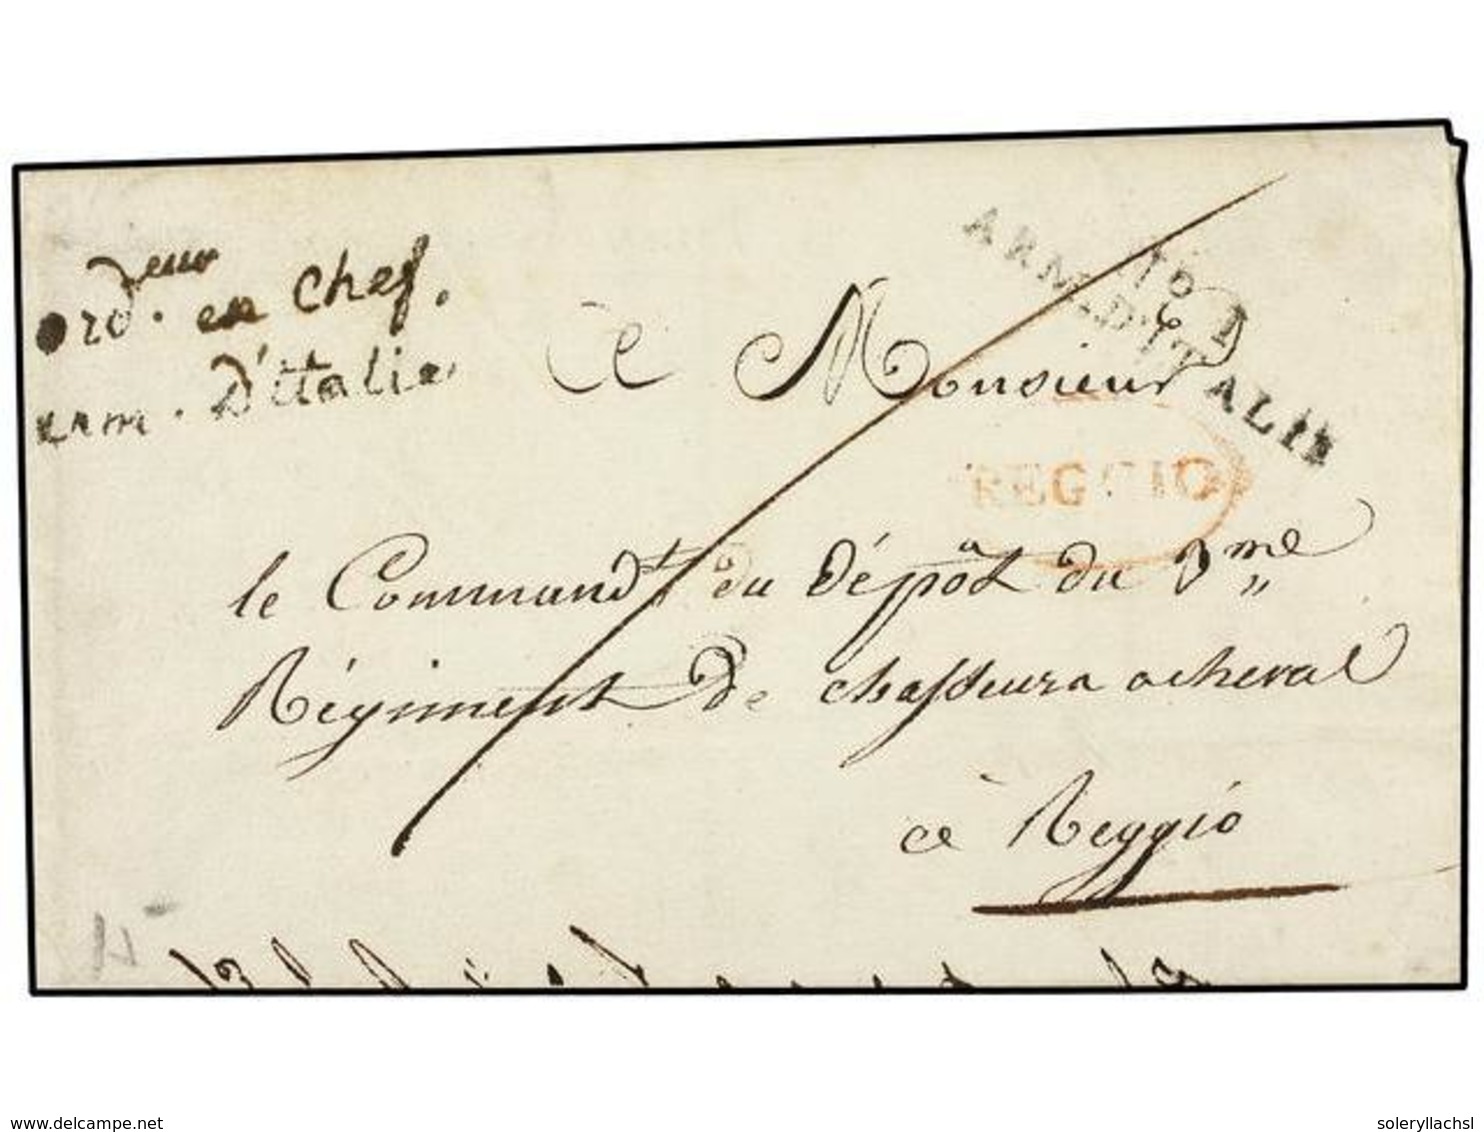 ord.deur en chef.
arm. d'italie
A Monsieur
ARM. D'ITALIE
REGGIO
le Command.t du dépôt du
me
Régiment de chasseurs a cheval
à Reggio
www.delcampe.net
soleryllachsl